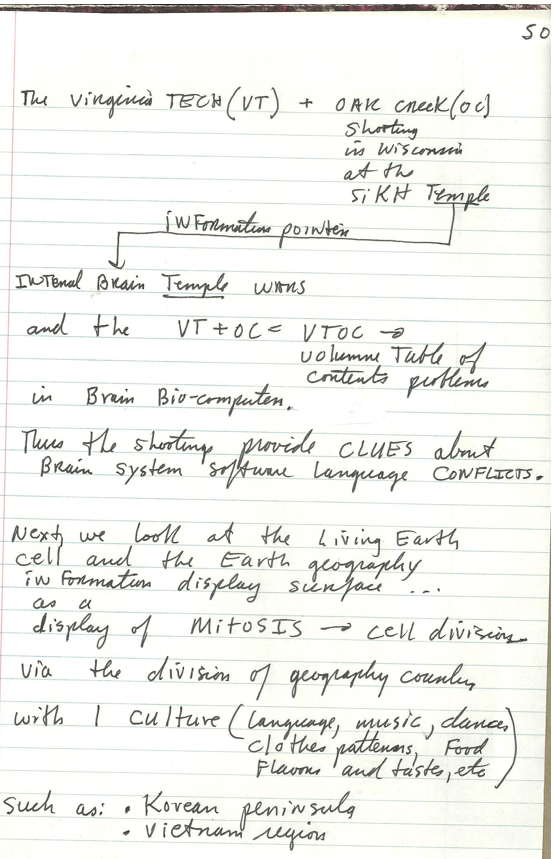 50
The Virginia TECH (VT) + OAK Creek (OC)
Shooting
in Wisconsin
at the
SIKH Temple
inFormation pointer
INTenal Brain Temple WARS
and the VT + OC = VTOC →
volumne Table of
contents problems
in Brain Bio-computer.
Thus the shootings provide CLUES about
Brain system software language CONFLICTS.
Next, we look at the Living Earth
cell and the Earth geography
inFormation display surface ...
as a
display of MITOSIS → cell division
via the division of geography country
with 1 culture (language, music, dances,
clothes patterns, Food
Flavors and tastes, etc)
Such as: • Korean peninsula
• Vietnam region